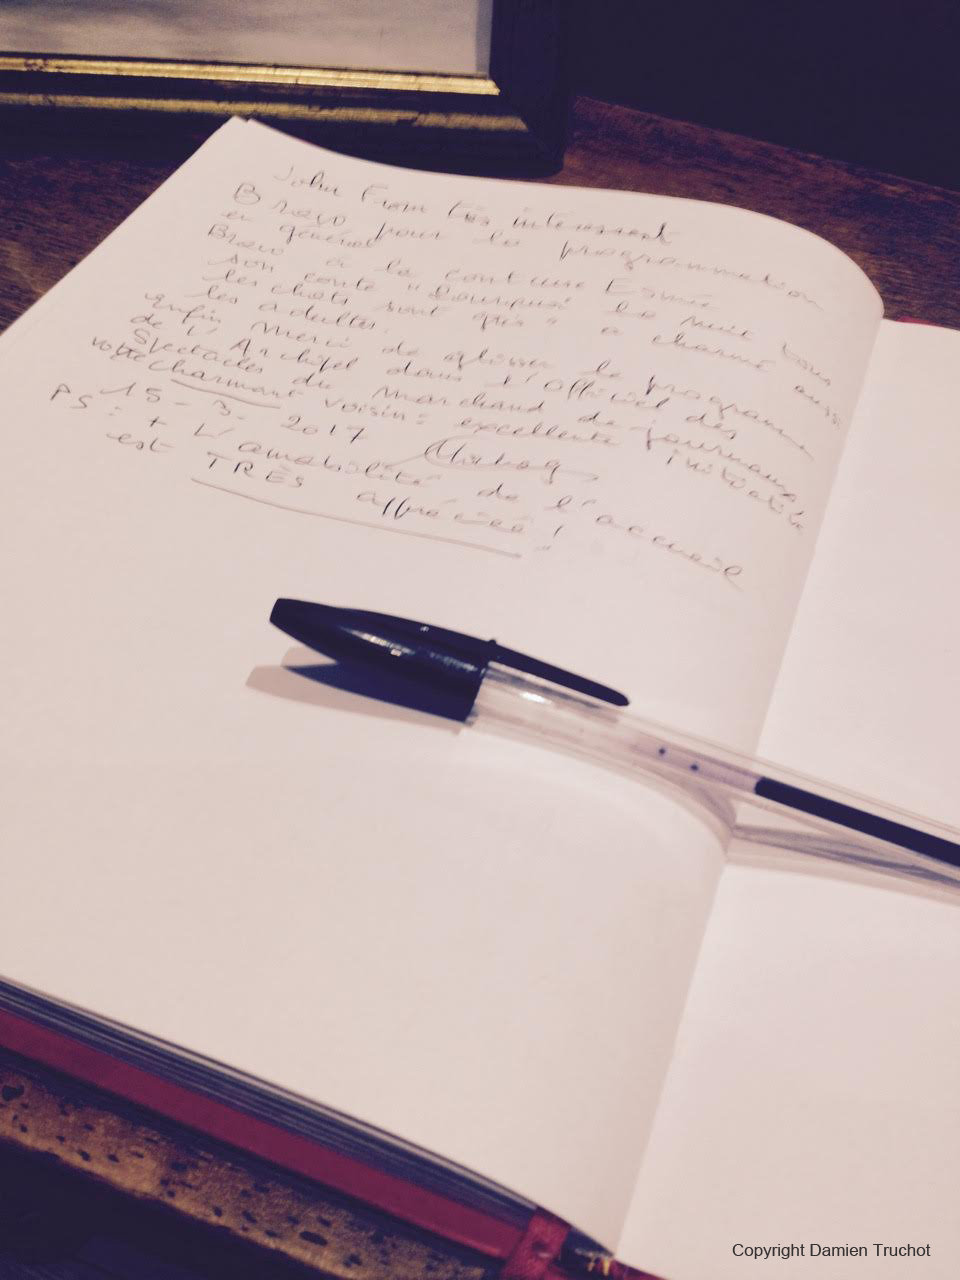 John From très intéressant
Bravo pour la programmation
en général
Bravo à la conteuse Esmé
son conte "Pourquoi la nuit tous
les chats sont gris" a charmé aussi
les adultes.
Enfin Merci de glisser le programme
de l'Archipel dans l'Officiel des
Spectacles du Marchand de journaux
votre charmant voisin: excellente initiative
15-3-2017
PS: + L'amabilité de l'accueil
est TRÈS appréciée!
Copyright Damien Truchot